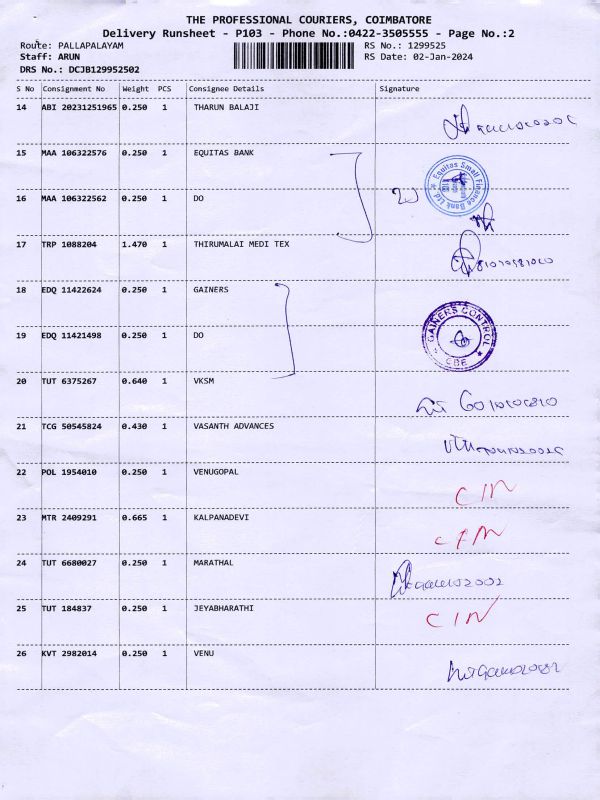 THE PROFESSIONAL COURIERS, COIMBATORE
Delivery Runsheet - P103 - Phone No.:0422-3505555 - Page No.:2
Route: PALLAPALAYAM RS No.: 1299525
Staff: ARUN RS Date: 02-Jan-2024
DRS No.: DCJB129952502
S No Consignment No Weight PCS Consignee Details Signature
14 ABI 20231251965 0.250 1 THARUN BALAJI
15 MAA 106322576 0.250 1 EQUITAS BANK
Equitas Small Finance Bank Ltd.
16 MAA 106322562 0.250 1 DO
17 TRP 1088204 1.470 1 THIRUMALAI MEDI TEX
18 EDQ 11422624 0.250 1 GAINERS
GAINERS CONTROL CBE
19 EDQ 11421498 0.250 1 DO
20 TUT 6375267 0.640 1 VKSM
21 TCG 50545824 0.430 1 VASANTH ADVANCES
22 POL 1954010 0.250 1 VENUGOPAL CIN
23 MTR 2409291 0.665 1 KALPANADEVI CIN
24 TUT 6680027 0.250 1 MARATHAL
25 TUT 184837 0.250 1 JEYABHARATHI CIN
26 KVT 2982014 0.250 1 VENU